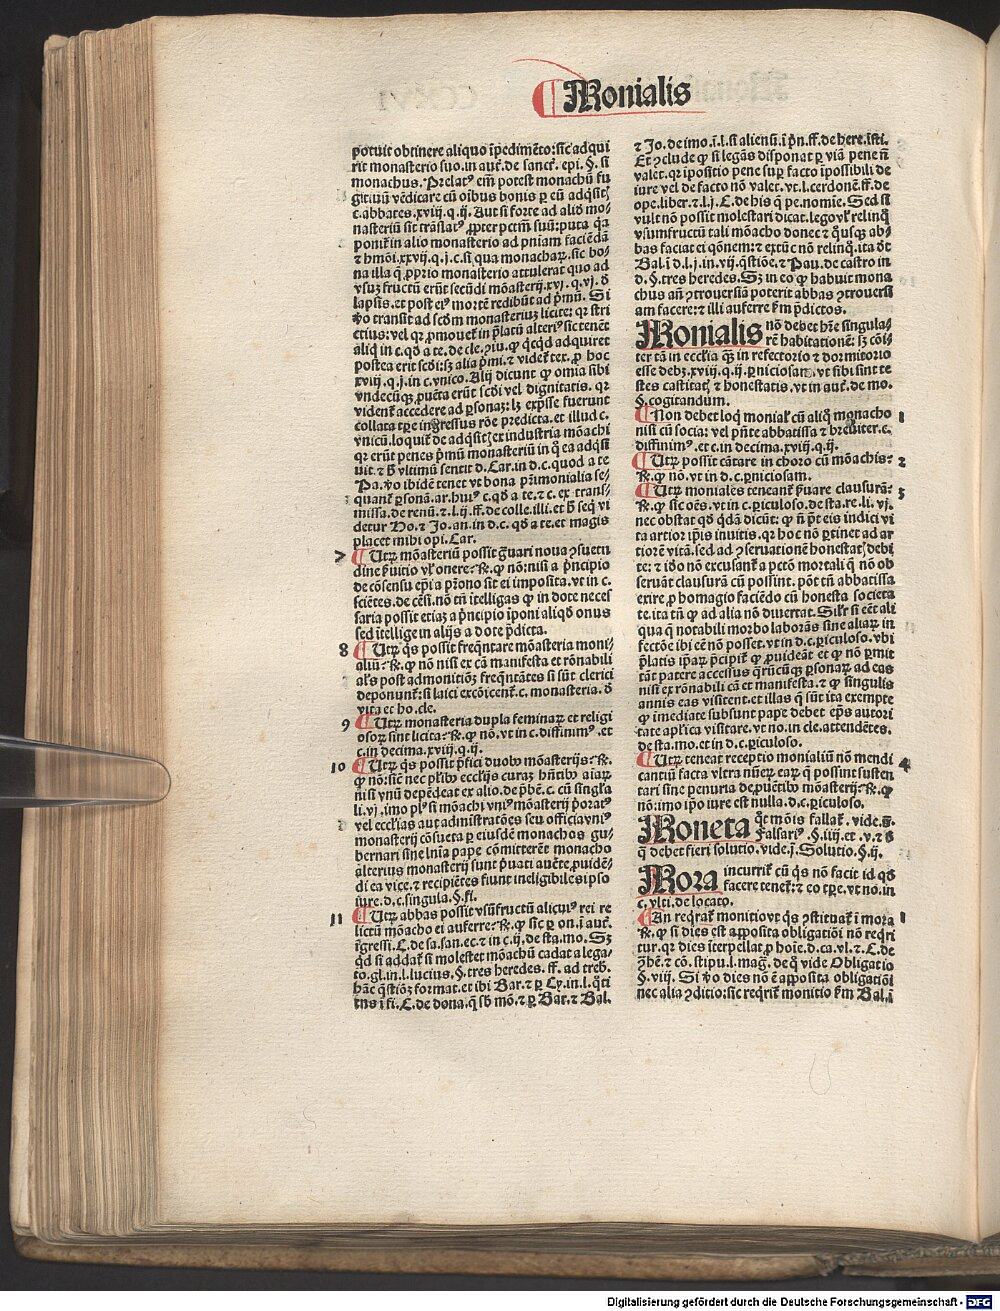 ¶ Monialis
potuit obtinere aliquo īpedimēto: sic adqui
rit monasterio suo. in aut̄. de sanct̄. epi. §. si
monachus. Prelatꝰ em̄ potest monachū fu
gitiuū vēdicare cū oībus bonis
c. abbates. xviij. q. ij. Aut si forte ad aliō mo⸗
nasteriū sit trāslatꝰ ꝓpter pctm̄ suū: puta q̄a
ponit̄ in alio monasterio ad pniam faciēdā
⁊ hmōi. xxvij. q. j. c. si qua monachaꝝ. sic bo⸗
na illa q̄ ꝓprio monasterio attulerat quo ad
vsuꝫ fructū erūt secūdi monasterij. xvj. q. vj. ō
lapsis. et post eiꝰ mortē redibūt ad pͥmū. Si
ꝟo transit ad scōm monasteriuꝫ licite: qꝛ stri
ctius: vel qꝛ ꝓmouet̄ in p̄latū alteriꝰ sic tenēt
aliq̄ in c. qō a te. de cle. ꝯiu. ꝙ qͥcqd adquiret
postea erit scōi: sꝫ alia pͥmi. ⁊ videt̄ tex. ꝓ hoc
xviij. q. j. in c. vnico. Alij dicunt ꝙ omia sibi
vndecūqꝫ ꝓuēta erūt scōi vel dignitatis. qꝛ
vident̄ accedere ad ꝑsonaꝫ: lꝫ exp̄sse fuerunt
collata tꝑe ingressus rōe predicta. et illud c.
vnicū. loquit̄ de adq̄sitꝭ ex industria mōachi
qꝛ erūt penes pͥmū monasteriū in qͦ ea adqsi
uit. ⁊ hͦ vltimū sentit d. Car. in d. c. quod a te
Pa. ꝟo ibidē tenet vt bona pr̄imonialia se⸗
quant̄ ꝑsonā. ar. huiꝰ c. qō a te. ⁊ c. ex trans⸗
missa. de renū. ⁊ l. ij. ff. de colle. illi. et hͦ seq̄ vi
detur Ho. ⁊ Jo. an. in d. c. qō a te. et magis
placet mihi opi. Car.
7 ¶ Utꝝ mōasteriū possit ḡuari noua ꝯsuetu
dine ẜuitio vl̓ onere: ℞. ꝙ nō: nisi a pͥncipio
de cōsensu ep̄i a pr̄ono sit ei imposita. vt in c.
sciētes. de cēsi. nō tn̄ itelligas ꝙ in dote neces
saria possit etiaꝫ a pͥncipio īponi aliqō onus
sed itellige in alijs a dote p̄dicta.
8 ¶ Utꝝ qͥs possit freq̄ntare mōasteria moni⸗
aliū: ℞. ꝙ nō nisi ex cā manifesta et rōnabili
al̓s post admonitiōꝫ freq̄ntātes si sūt clerici
deponunt̄: si laici excōicent̄. c. monasteria. ō
vita et ho. cle.
9 ¶ Utꝝ monasteria dupla feminaꝝ et religi
osoꝝ sint licita: ℞. ꝙ nō. vt in c. diffinimꝰ. et
c. in decima. xviij. q. ij.
10 ¶ Utꝝ qͥs possit p̄fici duobꝰ mōasterijs: ℞.
ꝙ nō: sic nec pl̓ibꝰ eccl̓ijs curaꝫ hn̄tibꝰ aīaꝝ
nisi vnū depēdeat ex alio. de p̄bē. c. cū singl̓a
li. vj. imo pl̓ꝰ si mōachi vniꝰ mōasterij p̄oratꝰ
vel eccl̓ias aut admīstratōes seu officia vniꝰ
monasterij cōsueta ꝑ eiusdē monachos gu⸗
bernari sine lnīa pape cōmitterēt monacho
alterius monasterij sunt pͥuati auc̄te ꝓuidē⸗
di ea vice. ⁊ recipiētes fiunt ineligibiles ipso
iure. d. c. singula. §. fi.
11 ¶ Utꝝ abbas possit vsūfructū alicuiꝰ rei re
lictū mōacho ei auferre: ℞. ꝙ sic ꝑ on. i aut̄.
īgressi. C. de sa. san. ec. ⁊ in c. ij. de sta. mo. Sꝫ
qd si addat̄ si molestet mōachū cadat a lega⸗
to. gl. in. l. lucius. §. tres heredes. ff. ad treb̄.
hāc q̄stiōꝫ format. et ibi Bar. ⁊ ꝑ Cy. in. l. qͣti
tus ī fi. C. de dona. q̄ sb̄ mō. ⁊ ꝑ Bar. ⁊ Bal.
⁊ Jo. de imo. ī. l. si alienū. ī pͥn. ff. de here. īsti.
Et ꝯclude ꝙ si legās disponat ꝑ viā pene nō
valet. qꝛ ipositio pene suꝑ facto īpossibili de
iure vel de facto nō valet. vt. l. cerdonē ff. de
ope. liber. ⁊ l. j. C. de his q̄ pe. nomie. Sed si
vult nō possit molestari dicat. lego vl̓ relinq̄
vsumfructū tali mōacho donec ⁊ qͦusqꝫ ab⸗
bas faciat ei qōnem: ⁊ extūc nō relinq̄. ita ōt
Bal. ī d. l. j. in. vij. q̄stiōe. ⁊ Pau. de castro in
d. §. tres heredes. Sꝫ in eo qͦ habuit mona
chus an̄ ꝯtrouersiā poterit abbas ꝯtrouersi
am facere: ⁊ illi auferre ẜm p̄dictos.
Monialis nō debet hr̄e singula⸗
rē habitationē: sꝫ cōi⸗
ter tā in eccl̓ia qꝫ in refectorio ⁊ dormitorio
esse debꝫ. xviij. q. ij. ꝑniciosam. vt sibi sint te
stes castitatꝭ ⁊ honestatis. vt in aut̄. de mo.
§. cogitandum.
¶ Non debet loq̄ monial̓ cū aliq̄ monacho 1
nisi cū socia: vel pn̄te abbatissa ⁊ breuiter. c.
diffinimꝰ. et c. in decima. xviij. q. ij.
¶ Utꝝ possit cātare in choro cū mōachis: 2
℞. ꝙ nō. vt in d. c. ꝑniciosam.
¶ Utꝝ moniales teneant̄ ẜuare clausurā: 3
℞. ꝙ sic oēs. vt in c. ꝑiculoso. de sta. re. li. vj.
nec obstat qō qͥdā dicūt: ꝙ nō pōt eis indici vi
ta artior ip̄is inuitis. qꝛ hoc nō ꝑtinet ad ar
tiorē vitā. sed ad ꝯseruationē honestatꝭ debi
te: ⁊ iōo nō excusant̄ a pctō mortali q̄ nō ob
seruāt clausurā cū possint. pōt tn̄ abbatissa
exire ꝓ homagio faciēdo cū honesta societa
te. ita tn̄ ꝙ ad alia nō diuertat. Silr̄ si eēt ali
qua q̄ notabili morbo laborās sine aliaꝝ in
fectōe ibi eē nō posset. vt in d. c. ꝑiculoso. vbi
p̄latis ip̄aꝝ p̄cipit̄ ꝙ ꝓuideāt et ꝙ nō ꝑmit
tāt patere accessus q̄rūcūqꝫ ꝑsonaꝝ ad eas
nisi ex rōnabili cā et manifesta. ⁊ ꝙ singulis
annis eas visitent. et illas q̄ sūt ita exempte
ꝙ imediate subsunt pape debet ep̄s autori
tate apl̓ica visitare. vt no. in cle. attendētes.
de sta. mo. et in d. c. ꝑiculoso.
¶ Utꝝ teneat receptio monialiū nō mendi 4
cantiū facta vltra nūeꝝ eaꝝ q̄ possint susten
tari sine penuria de ꝓuētibꝰ mōasterij: ℞. ꝙ
nō: imo ip̄o iure est nulla. d. c. ꝑiculoso.
Moneta q̄t mōis fallat̄. vide. s̄.
Falsariꝰ. §. iiij. et. v. ⁊ ō
q̄ debet fieri solutio. vide. j. Solutio. §. ij.
Mora incurrit̄ cū qͥs nō facit id qō
facere tenet̄: ⁊ eo tꝑe. vt no. in
c. vlti. de locato.
¶ An reqͥrat̄ monitio vt qͥs ꝯstituat̄ ī mora 1
℞. ꝙ si dies est apposita obligatiōi nō reqͥri
tur. qꝛ dies īterpellat ꝓ hoīe. d. ca. vl. ⁊ C. de
ꝯhē. ⁊ cō. stipu. l. maḡ. de qͦ vide Obligatio
§. viij. Si ꝟo dies nō ē apposita obligatiōi
nec alia ꝯditio: sic reqͥrit̄ monitio ẜm Bal. ī
Digitalisierung gefördert durch die Deutsche Forschungsgemeinschaft - DFG